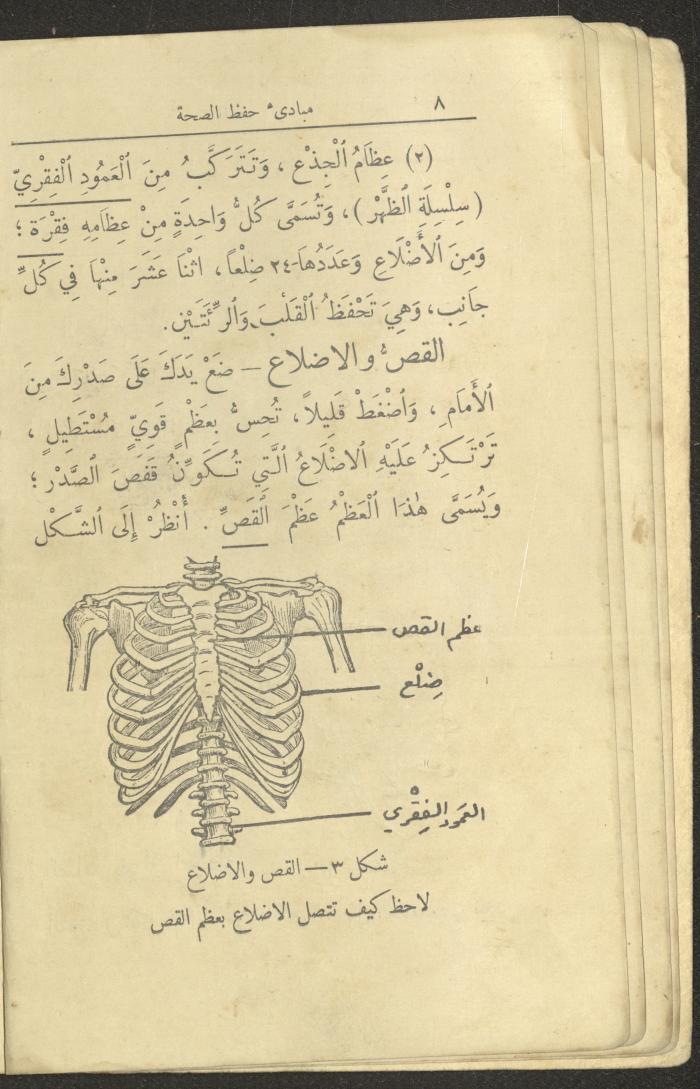 ٨
مبادىء حفظ الصحة
(٢) عِظَامُ ٱلْجِذْعِ ، وَتَتَرَكَّبُ مِنَ ٱلْعَمُودِ ٱلْفِقْرِيِّ
(سِلْسِلَةِ ٱلظَّهْرِ)، وَتُسَمَّى كُلُّ وَاحِدَةٍ مِنْ عِظَامِهِ فِقْرَة ؛
وَمِنَ ٱلْأَضْلَاعِ وَعَدَدُهَا ٢٤ ضِلْعاً، اثْنَا عَشَرَ مِنْهَا فِي كُلِّ
جانِب، وَهِيَ تَحْفَظُ ٱلْقَلْبَ وَٱلرِّئَتَيْنِ.
القصُّ والاضلاع — ضَعْ يَدَكَ عَلَى صَدْرِكَ مِنَ
ٱلْأَمَامِ، وَٱضْغَطْ قَلِيلاً، تُحِسُّ بِعَظْمٍ قَوِيٍّ مُسْتَطِيلٍ ،
تَرْتَكِزُ عَلَيْهِ ٱلاضْلَاعُ ٱلَّتِي تُكَوِّنُ قَفَصَ ٱلصَّدْرِ ؛
وَيُسَمَّى هٰذَا ٱلْعَظْمُ عَظْمَ ٱلْقَصِّ . أُنْظُرْ إِلَى ٱلشَّكْل
عظم القص
ضِلْع
العمود الفِقْري
شكل ٣ — القص والاضلاع
لاحظ كيف تتصل الاضلاع بعظم القص